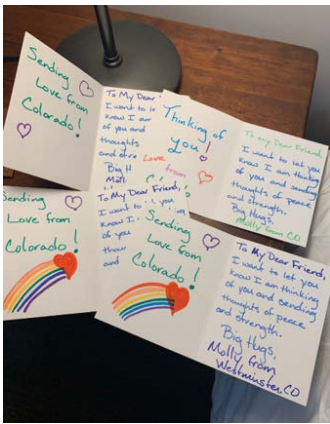 Sending
Love from
Colorado!
To My Dear
I want to le
know I am
of you and
thoughts
and stre
Big H
Moll
Thinking of
you!
Love
from
To my Dear Friend,
I want to let you
know I am thinking
of you and sending
thoughts of peace
and strength.
Big Hugs,
Molly from CO
Sending
Love from
Colorado!
To My Dear Friend,
I want to
know I
of you
thou
and
Sending
Love from
Colorado!
To My Dear Friend,
I want to let you
know I am thinking
of you and sending
thoughts of peace
and strength.
Big Hugs,
Molly from
Westminster, CO